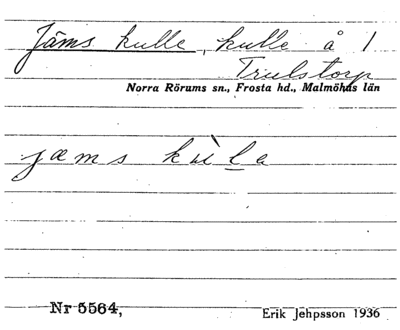 Jäms kulle, kulle å 1
Trulstorp
Norra Rörums sn., Frosta hd., Malmöhus län
jæms kùla
Nr 5564,
Erik Jehpsson 1936